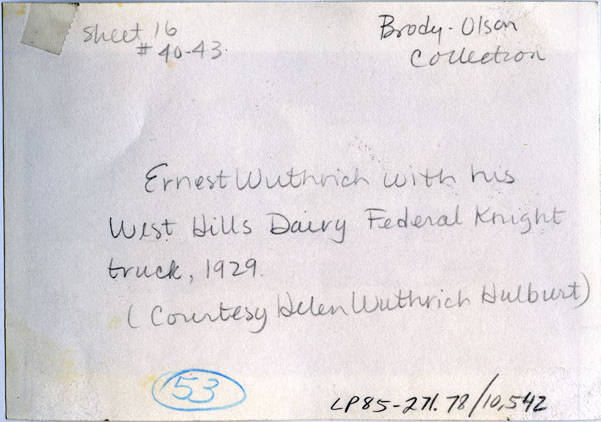 Sheet 16
# 40-43.
Brody-Olson
Collection
Ernest Wuthrich with his
West Hills Dairy Federal Knight
truck, 1929.
(Courtesy Helen Wuthrich Hulburt)
53
LP85-271.78/10,542